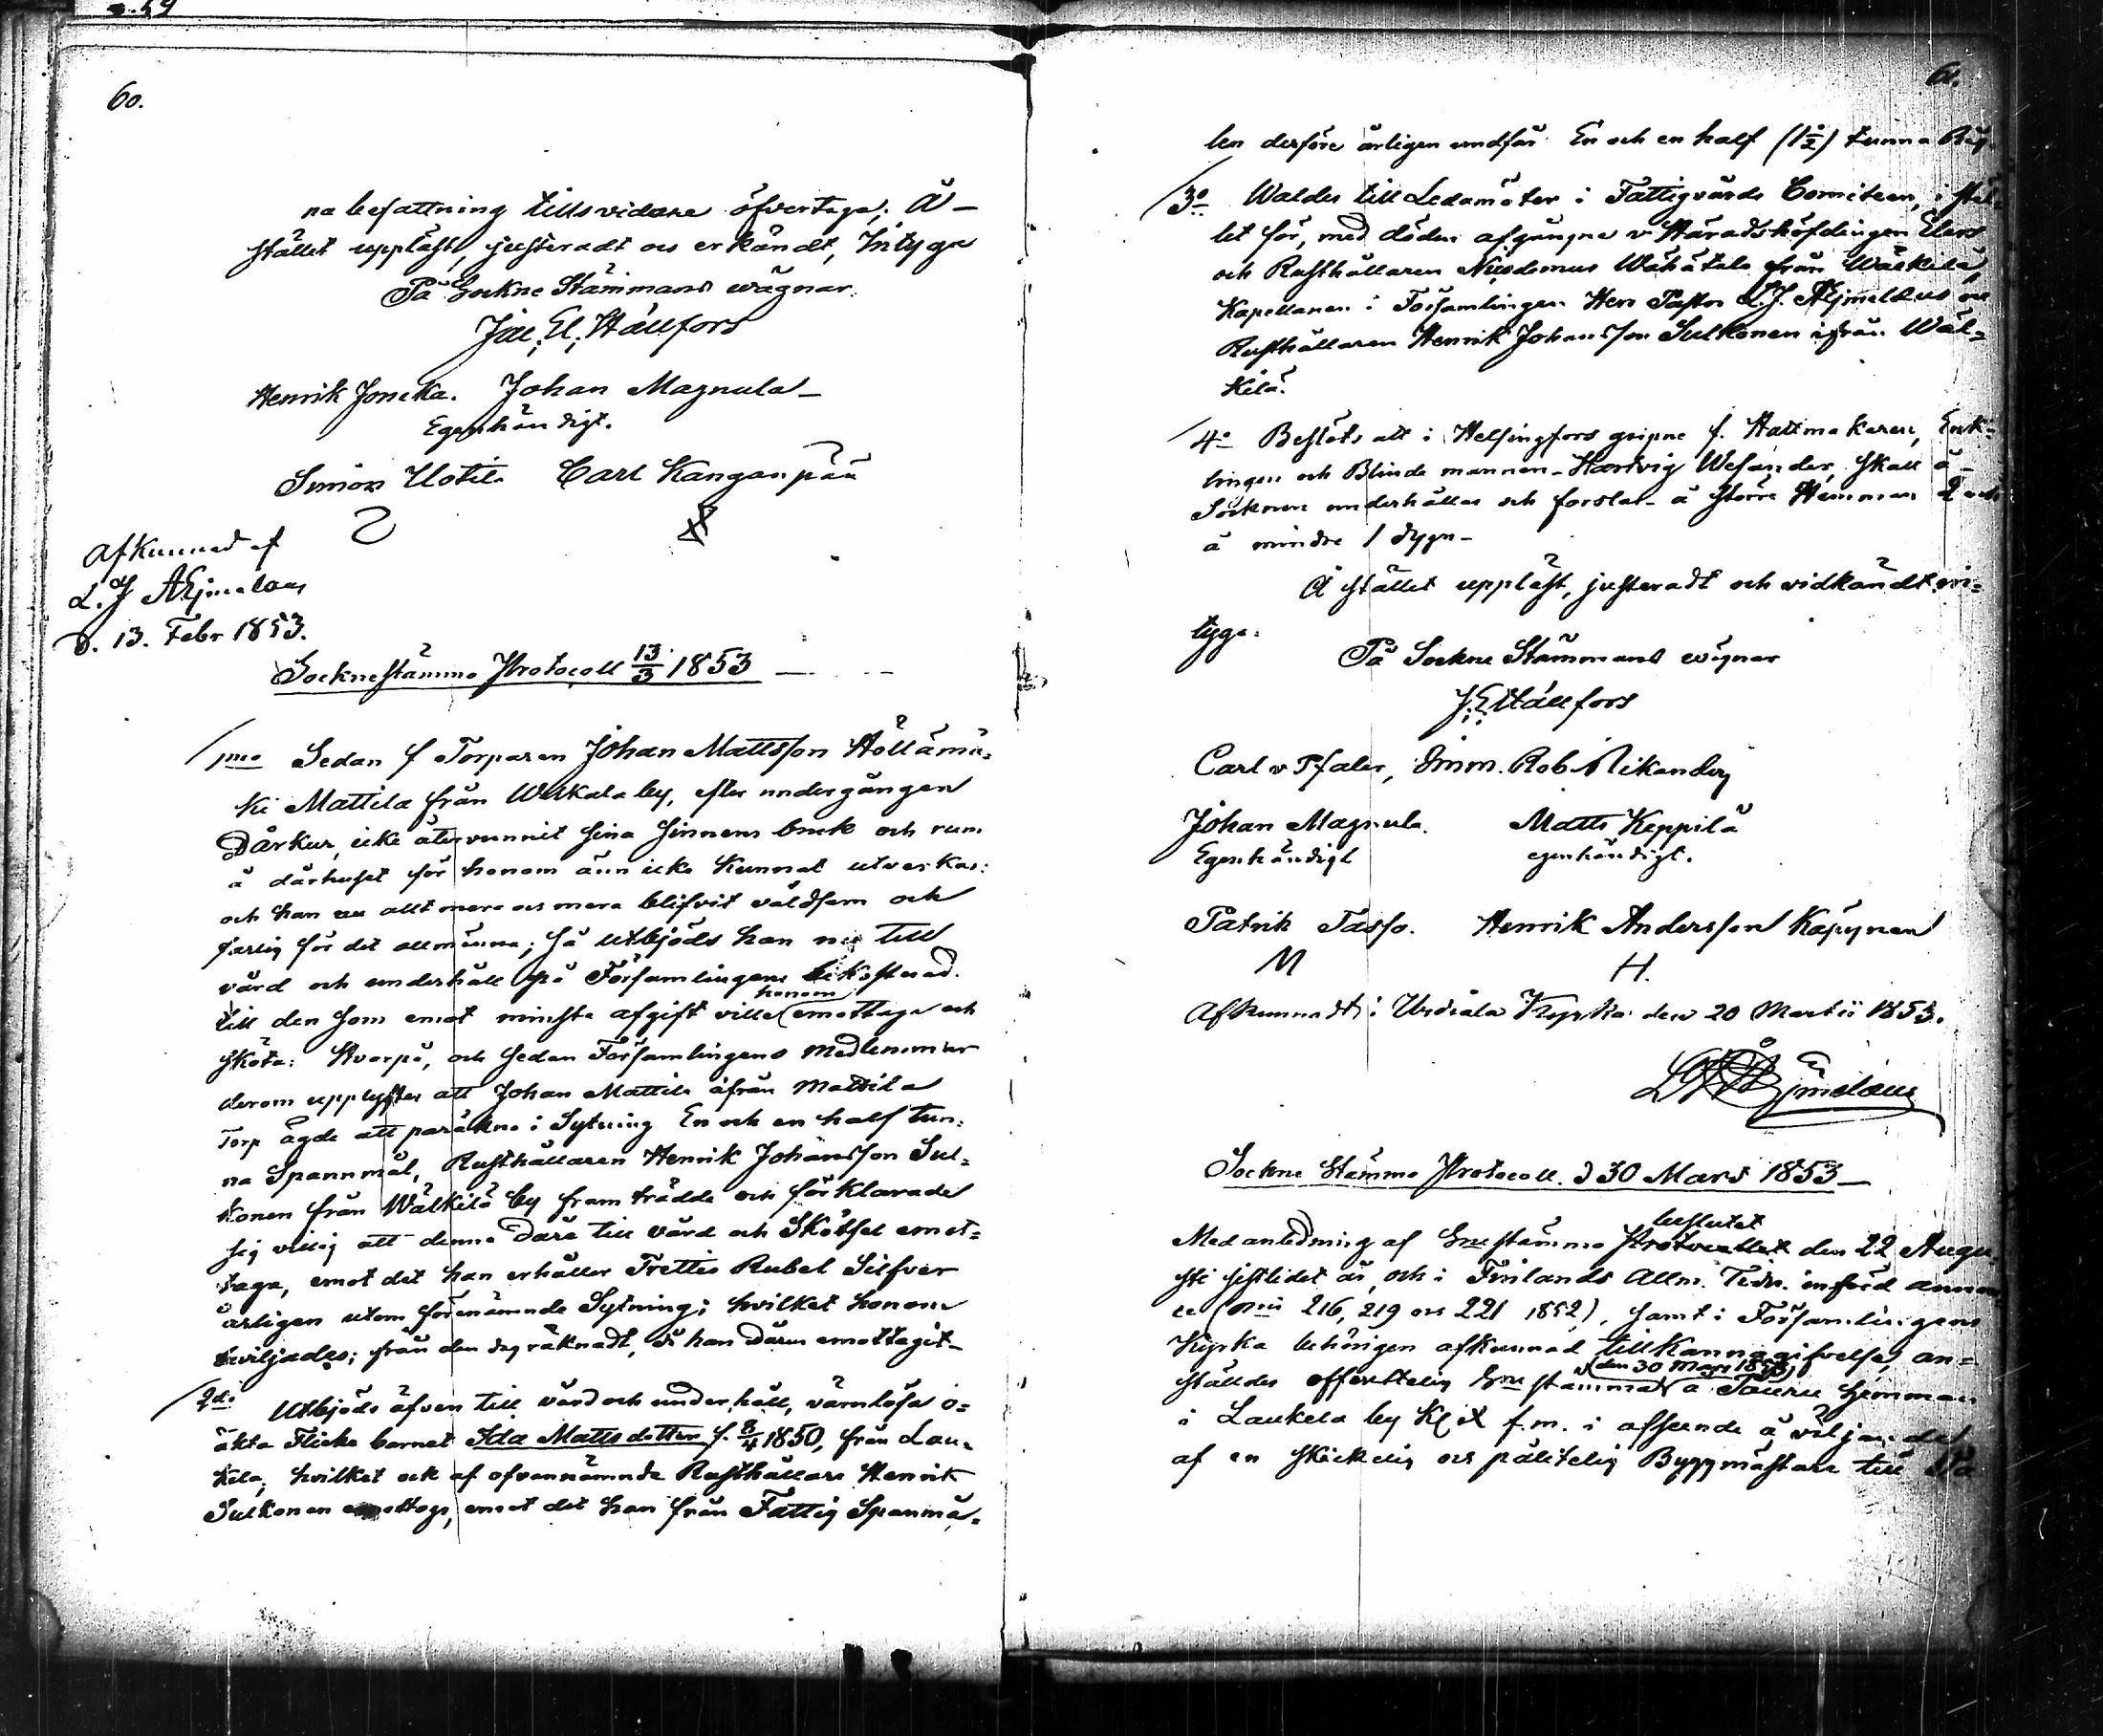 60.
na befattning tillsvidare öfvertaga; Å-
stället uppläst, justeradt och erkändt, Intyga
På Sockne Stämmans vägnar.
Jac. El. Hällfors
Henrik Joneka. Johan Magnula
Egenhändigt.
Simon Uotila Carl Kangaspää
Afkunnad af
L. J Aejmelaeus
D. 13. Febr 1853.
Socknestämmo Protocoll 13/3 1853
1mo Sedan f Torparen Johan Mattsson Höllämä=
ki Mattila från Walkala by, efter undergången
Dårkur, icke återvunnit sina sinnens bruk och rum
å dårhuset för honom änn icke kunnat utverkas:
och han nu allt mera och mera blifvit våldsam och
farlig för det allmänna; så utbjöds han nu till
vård och underhåll på Församlingens bekostnad.
till den som emot minsta afgift ville honom emottaga och
sköta: Hvarpå, och sedan Församlingens medlemmar
derom upplystes att Johan Mattila ifrån Mattila
Torp ägde att påräkna i Sytning En och en half tun=
na Spannmål, Rusthållaren Henrik Johansson Sul=
konen från Wälkilä by framträdde och förklarade
sig villig att denna Dåre till vård och Skötsel emot=
taga, emot det han erhåller Trettio Rubel Silfver
årligen utom förenämnde Sytning; hvilket honom
beviljades; från den dag räknadt, då han Dåren emottagit
2do Utbjöds äfven till vård och underhåll, värnlösa o=
äkta Flicke barnet Ida Mattsdotter f. 8/4 1850, från Lau=
kela; hvilket ock af ofvannämnda Rusthållare Henrik
Sulkonen emottogs, emot det han från Fattig Spanmå=
61.
len derföre årligen undfår En och en half (1½) tunna Råg
3o Waldes till Ledamöter i Fattigvårds Comiteen, i stäl
let för, med döden afgångne v Häradshöfdingen Elers
och Rusthållaren Nicodemus Wähätalo från Wälkilä,
Kapellanen i Församlingen Herr Pastor L. J. Aejmelaeus och
Rusthållaren Henrik Johansson Sulkonen ifrån Wäl=
kilä.
4o Beslöts att i Helsingfors gripne f. Hattmakaren, Enk=
lingen och Blinde mannen Hartvig Wesander, skall å
Socknen underhållas och forslas å större Hemman 2 och
å mindre 1 dygn-
Å stället uppläst, justeradt och vidkändt, in=
tyga:
På Sockne Stämmans vägnar
J. E Hällfors
Carl v Pfaler, Imm. Rob Nikander
Johan Magnula. Matts Keppilä
Egenhändigt egenhändigt.
Patrik Tasso. Henrik Andersson Käpynen
M H.
Afkunnadt i Urdiala Kyrka den 20 Martii 1853.
L J Aejmelaeus
Sockne Stämmo Protocoll. d 30 Mars 1853
Med anledning af Snestämmo beslutet den 22 Augu
sti sistlidet år, och i Finlands Allm. Tidn. införd annon
ce (Nris 216, 219 och 221 1852), samt i Församlingens
Kyrka behörigen afkunnad tillkännagifvelse, an=
ställdes offentelig Snestämma den 30 Mars 1853 å Pauru hemman
i Laukela by Kl. X f.m. i afseende å väljandet
af en skickelig och pålitelig Byggmästare till På